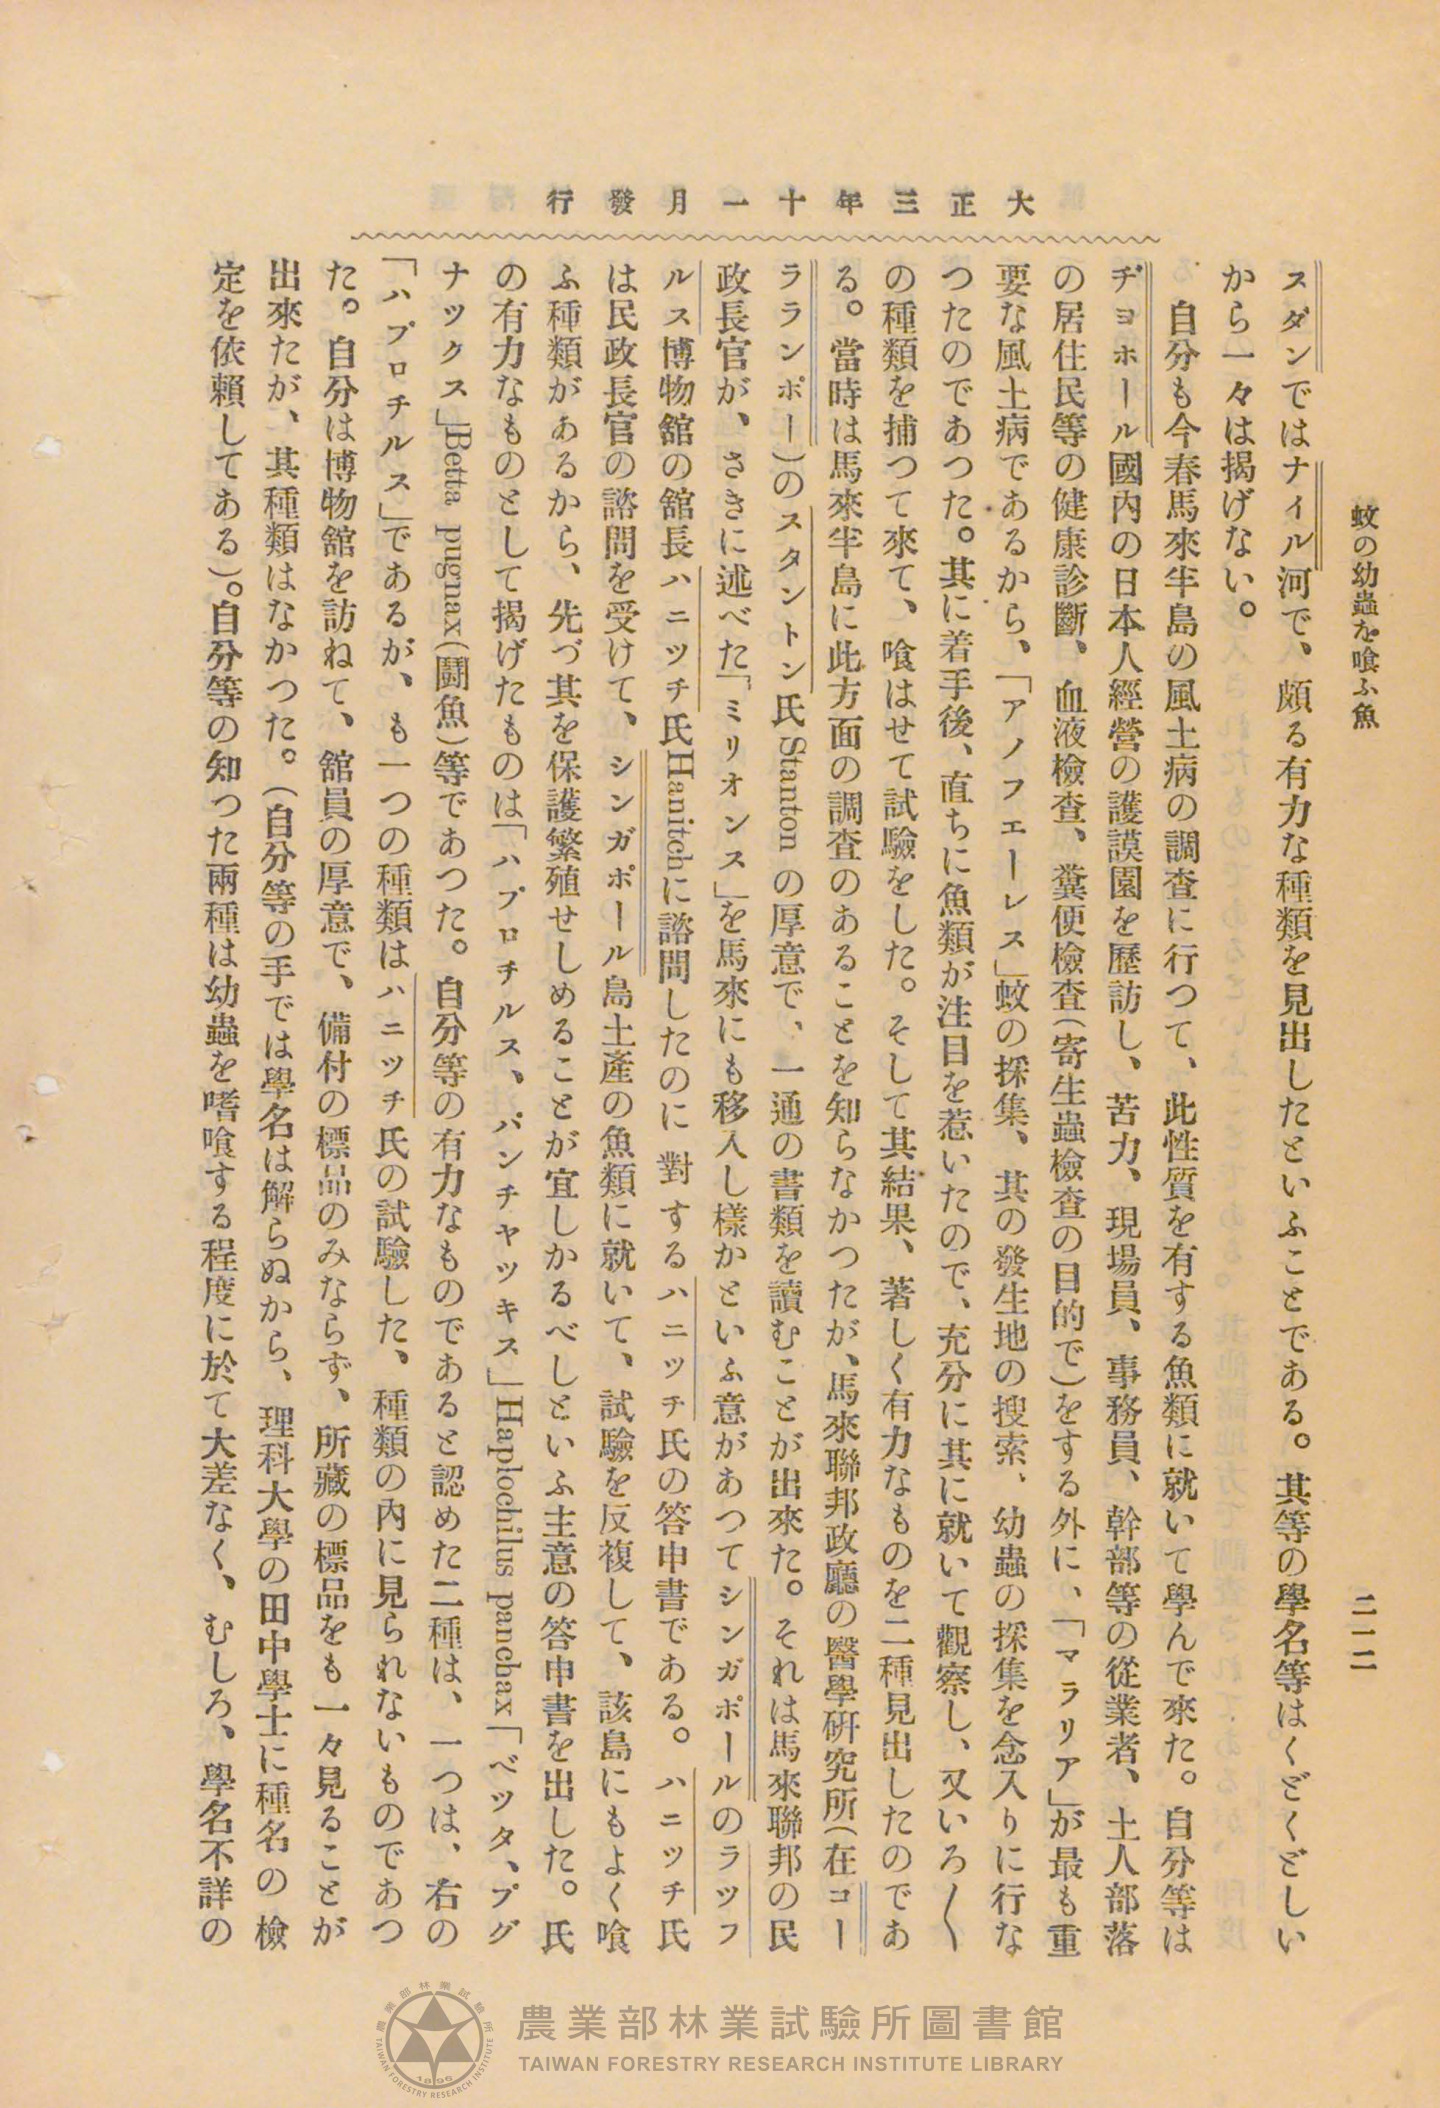 大正三年十一月發行
蚊の幼蟲を喰ふ魚
二一二
スダンではナイル河で、頗る有力な種類を見出したといふことである。其等の學名等はくどくどしい
から一々は揭げない。
自分も今春馬來半島の風土病の調査に行つて、此性質を有する魚類に就いて學んで來た。自分等は
ヂョホール國內の日本人經營の護謨園を歷訪し、苦力、現場員、事務員、幹部等の從業者、土人部落
の居住民等の健康診斷、血液檢查、糞便檢查(寄生蟲檢查の目的で)をする外に、「マラリア」が最も重
要な風土病であるから、「アノフェーレス」蚊の採集、其の發生地の搜索、幼蟲の採集を念入りに行な
つたのであつた。其に着手後、直ちに魚類が注目を惹いたので、充分に其に就いて觀察し、又いろ〱
の種類を捕つて來て、喰はせて試驗をした。そして其結果、著しく有力なものを二種見出したのであ
る。當時は馬來半島に此方面の調査のあることを知らなかつたが、馬來聯邦政廳の醫學研究所(在コー
ラランポー)のスタントン氏 Stanton の厚意で、一通の書類を讀むことが出來た。それは馬來聯邦の民
政長官が、さきに述べた「ミリオンス」を馬來にも移入し樣かといふ意があつてシンガポールのラッフ
ルス博物舘の舘長ハニッチ氏Hanitchに諮問したのに對するハニッチ氏の答申書である。ハニッチ氏
は民政長官の諮問を受けて、シンガポール島土產の魚類に就いて、試驗を反複して、該島にもよく喰
ふ種類があるから、先づ其を保護繁殖せしめることが宜しかるべしといふ主意の答申書を出した。氏
の有力なものとして揭げたものは「ハプロチルス、パンチャッキス」Haplochilus panchax「ベッタ、プグ
ナックス」Betta pugnax(鬪魚)等であつた。自分等の有力なものであると認めた二種は、一つは、右の
「ハプロチルス」であるが、も一つの種類はハニッチ氏の試驗した、種類の內に見られないものであつ
た。自分は博物舘を訪ねて、舘員の厚意で、備付の標品のみならず、所藏の標品をも一々見ることが
出來たが、其種類はなかつた。(自分等の手では學名は解らぬから、理科大學の田中學士に種名の檢
定を依賴してある)。自分等の知つた兩種は幼蟲を嗜喰する程度に於て大差なく、むしろ、學名不詳の
農業部林業試驗所圖書館
TAIWAN FORESTRY RESEARCH INSTITUTE LIBRARY
農業部林業試驗所
TAIWAN FORESTRY RESEARCH INSTITUTE
1896